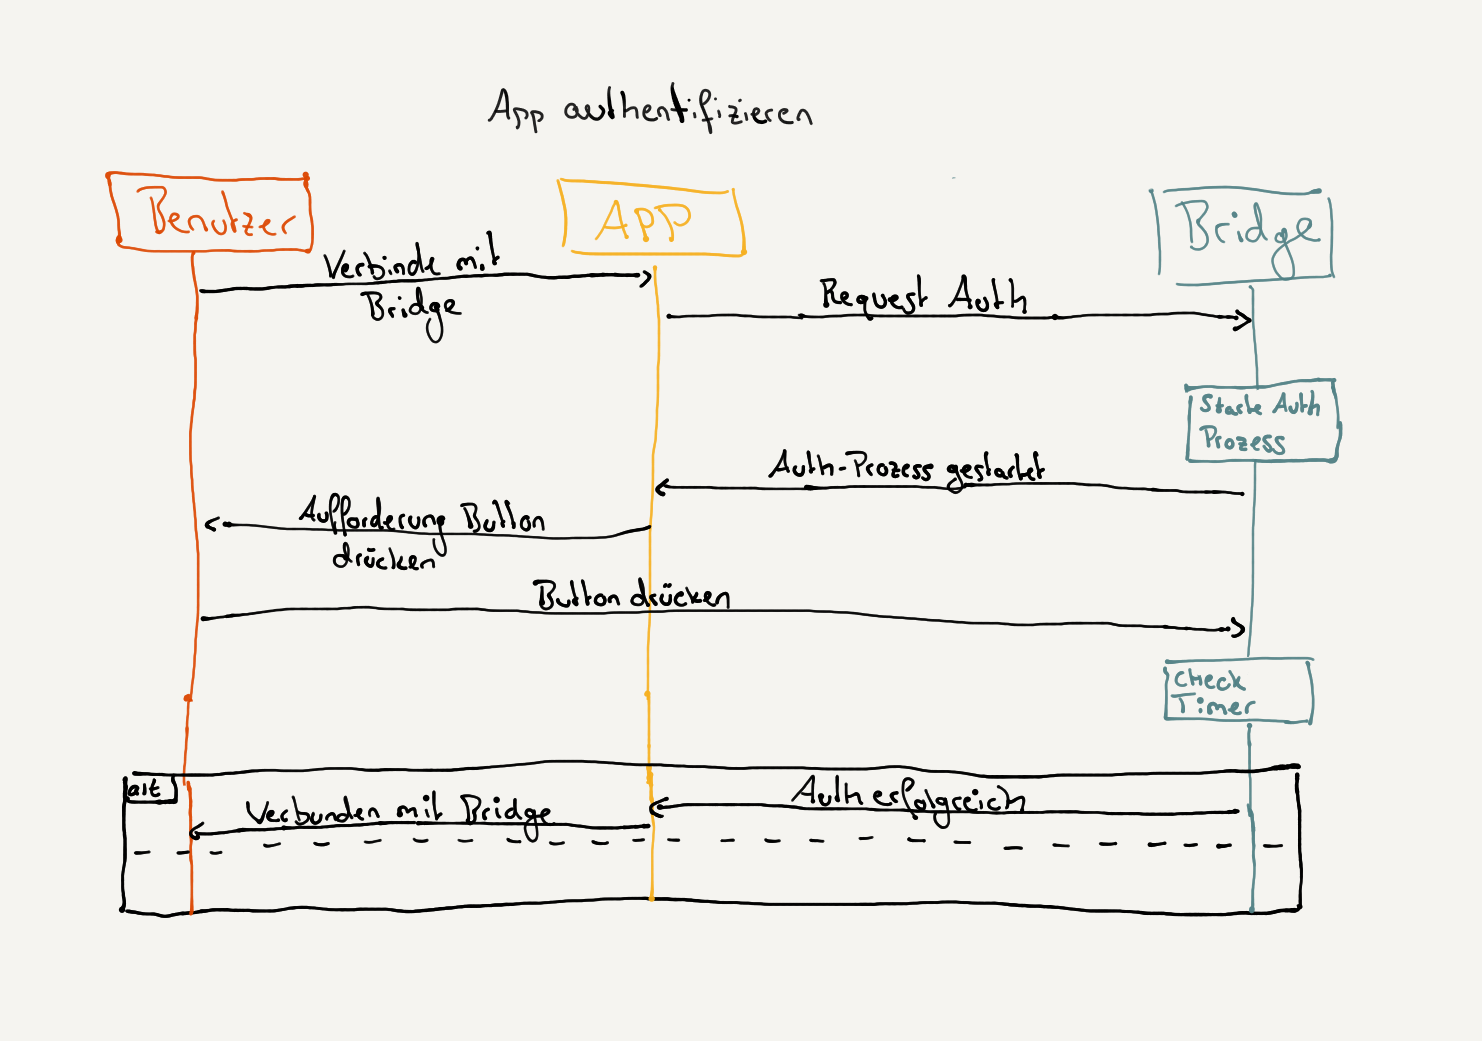 App authentifizieren
Benutzer
APP
Bridge
Verbinde mit
Bridge
Request Auth
Starte Auth
Prozess
Auth-Prozess gestartet
Aufforderung Button
drücken
Button drücken
CHECK
Timer
alt
Auth erfolgreich
Verbunden mit Bridge